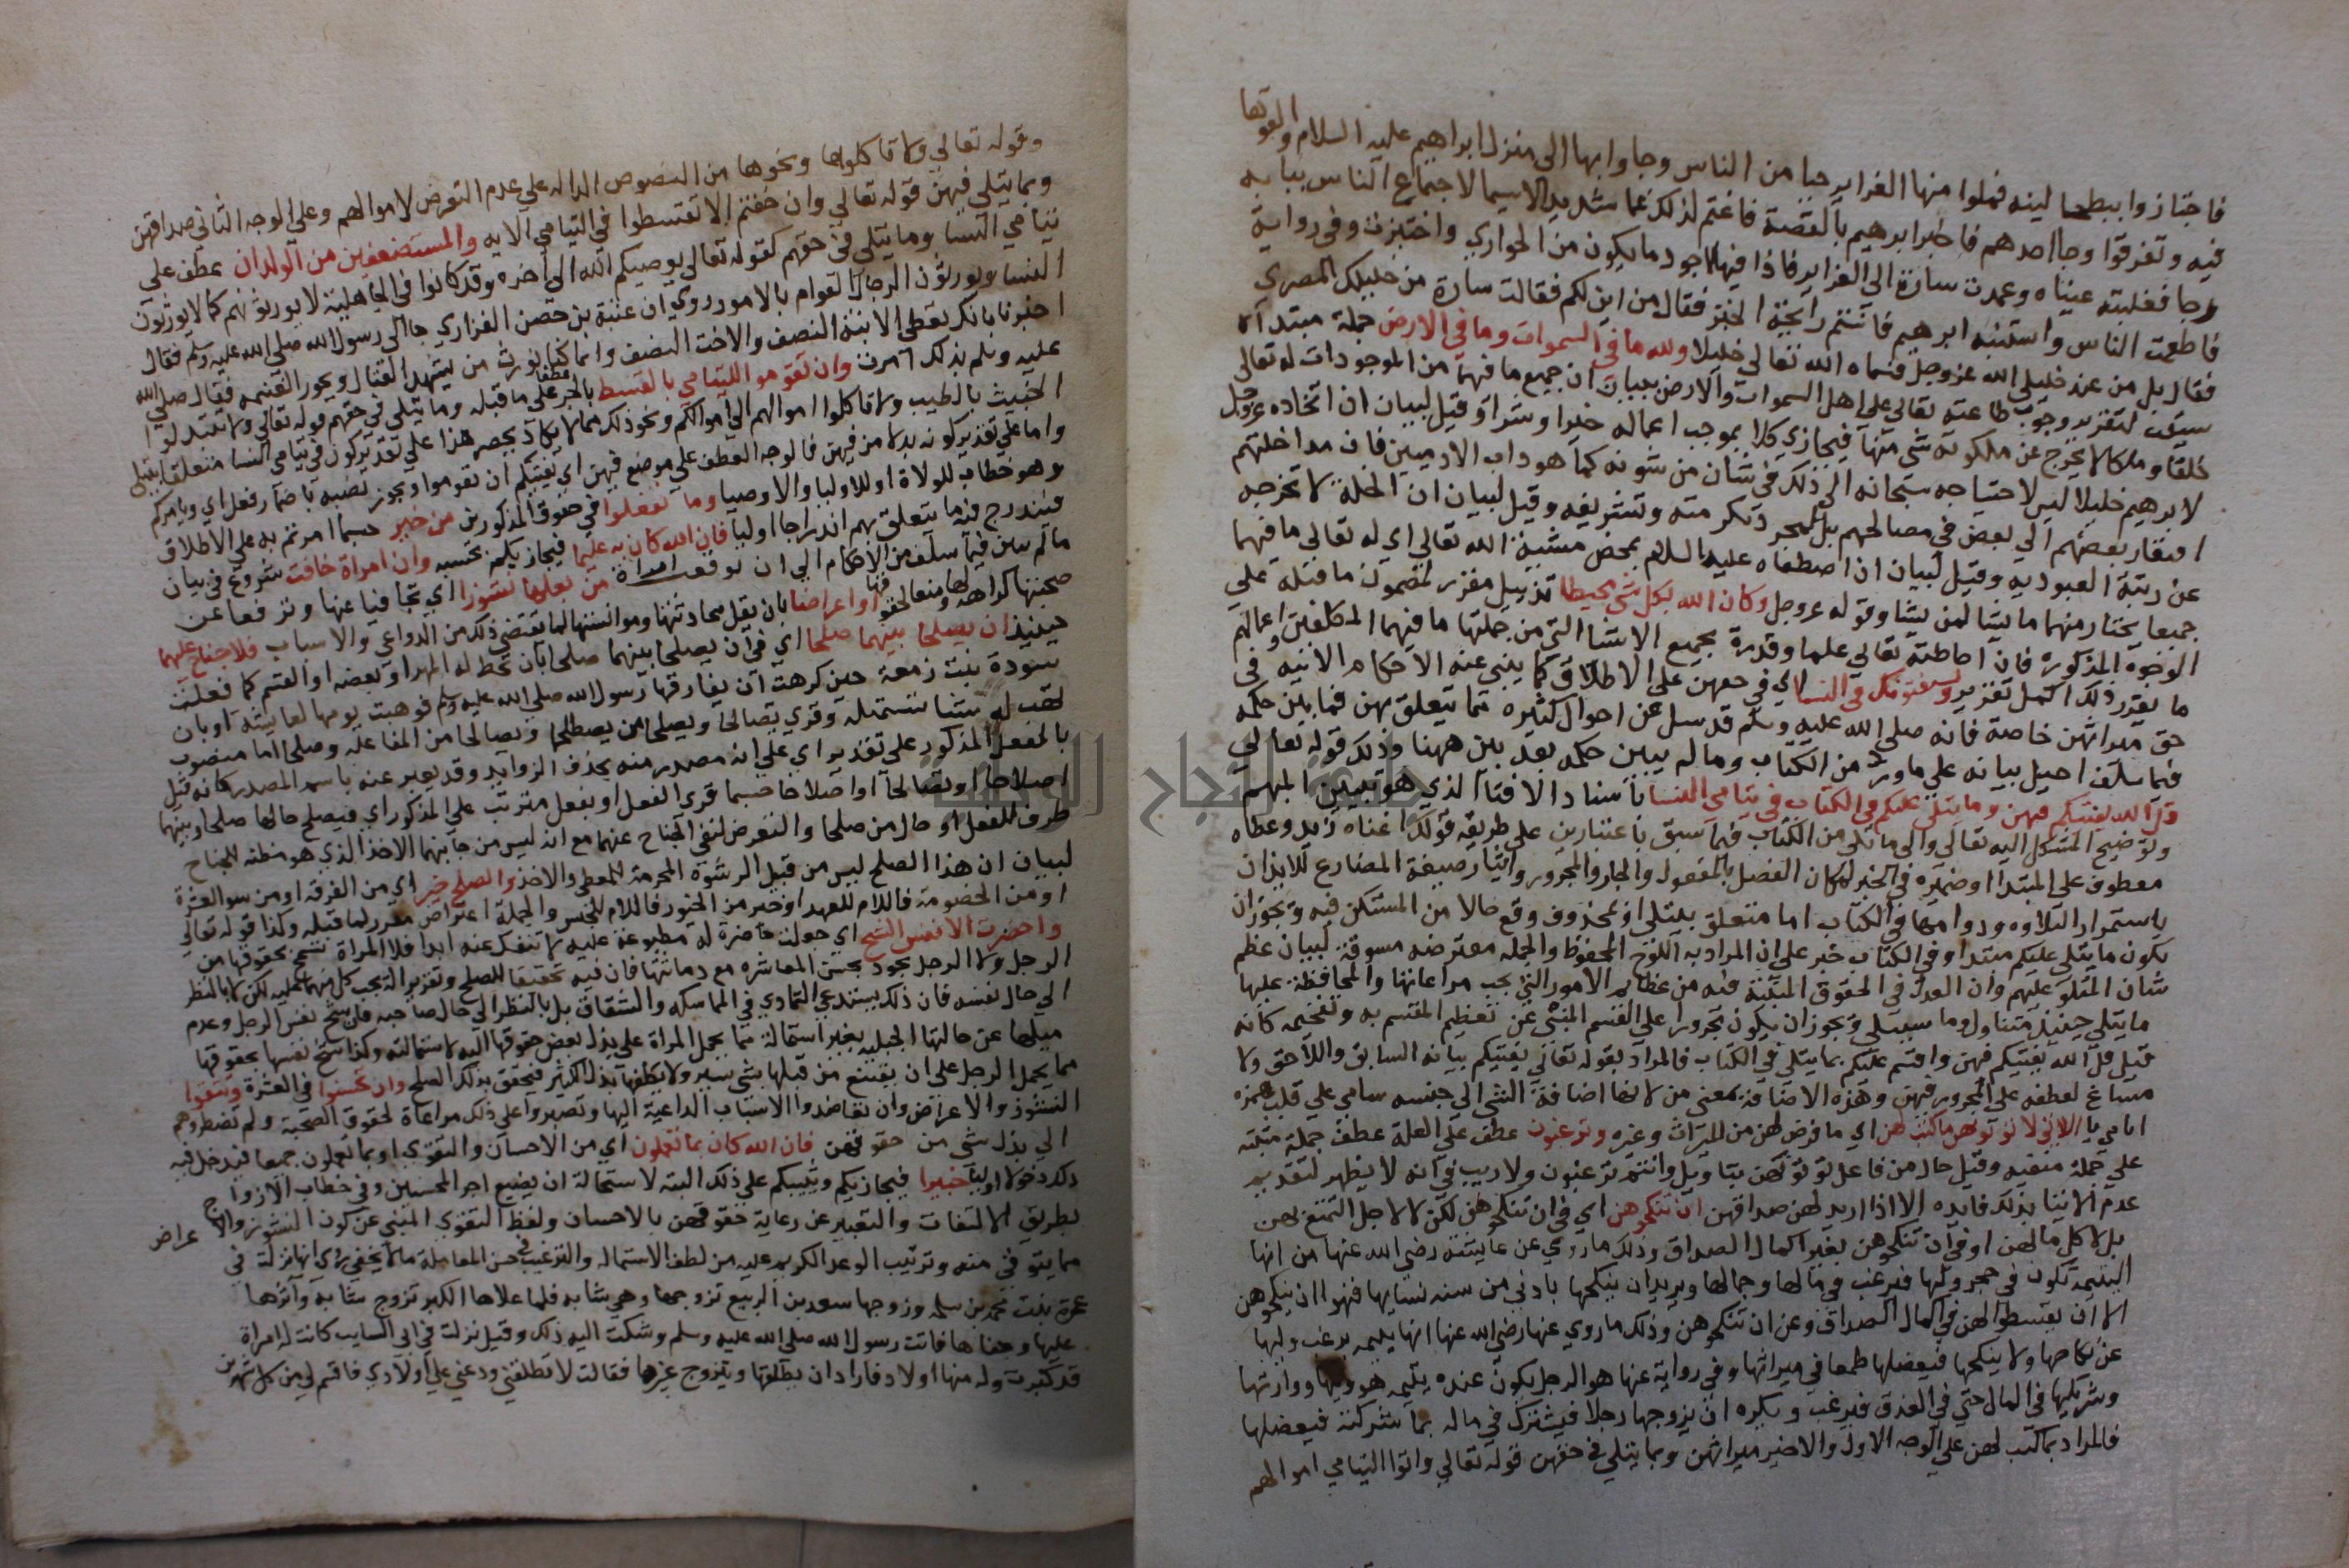 فاجتازوا ببطحا لينه فملوا منها الغراير حيا من الناس وجاوا بها الى منزل ابراهيم عليه السلام والقوها
فيه وتفرقوا وجا احدهم فاخبر ابرهيم بالقصة فاغتم لذلك غما شديدا لاسيما لاجتماع الناس ببابه
رجا فغلبته عيناه وعمدت سارة الى الغراير فاذا فيها اجود ما يكون من الحواري واختبزت وفي رواية
فاطعمت الناس واستنبه ابرهيم فاشتم رايحة الخبز فقال من اين لكم فقالت سارة من خليلك المصري
فقال بل من عند خليلي الله عز وجل فسماه الله تعالى خليلا ولله ما في السموات وما في الارض جملة مبتداة
سيقت لتقرير وجوب طاعته تعالى على اهل السموات والارض ببيان ان جميع ما فيهما من الموجودات له تعالى
خلقا وملكا لا يخرج عن ملكوته شي منها فيجازي كلا بموجب اعماله خيرا وشرا وقيل لبيان ان اتخاذه عز وجل
لابرهيم خليلا ليس لاحتياجه سبحانه الى ذلك في شان من شونه كما هو داب الادميين فان مداخلتهم
افتقار بعضهم الى بعض في مصالحهم بل لمجرد تكرمته وتشريفه وقيل لبيان ان الخلة لا تخرجه
عن رتبة العبودية وقيل لبيان ان اصطفاه عليه السلام بمحض مشيئة الله تعالى اي له تعالى ما فيهما
جميعا يختار منهما ما يشا لمن يشا وقوله عز وجل وكان الله بكل شي محيطا تذييل مقرر لمضمون ما قبله على
الوجوه المذكورة فان احاطته تعالى علما وقدرة بجميع الاشيا التي من جملتها ما فيهما المكلفين واعمالهم
ما يقرر ذلك اكمل تقرير ويستفتونك في النسا اي في حقهن على الاطلاق كما ينبي عنه الاحكام الاتية في
حق ميراثهن خاصة فانه صلى الله عليه وسلم قد سل عن احوال كثيرة مما يتعلق بهن فما بين حكمه
فيما سلف احيل بيانه على ما ورد من الكتاب وما لم يبين حكمه بعد بين ههنا وذلك قوله تعالى
قل الله يفتيكم فيهن وما يتلى عليكم في الكتاب في يتامى النسا باسناد الافتا الذي هو تبيين المبهم
وتوضيح المشكل اليه تعالى والى ما تلي من الكتاب فيما سبق باعتبارين على طريقة قولك اغناه زيد وعطاه
معطوف على المبتدا او ضميره في الخبر لمكان الفصل بالمفعول والجار والمجرور وايثار صيغة المضارع للايذان
باستمرار التلاوه ودوامها في الكتاب اما متعلق بيتلى او بمحذوف وقع حالا من المستكن فيه ويجوز ان
يكون ما يتلى عليكم مبتدا وفي الكتاب خبر على ان المراد به اللوح المحفوظ والجمله معترضه مسوقة لبيان عظم
شان المتلو عليهم وان العدل في الحقوق المبينة فيه من عظايم الامور التي يجب مراعاتها والمحافظة عليها
ما يتلى حينيذ متناول وما سيتلى ويجوز ان يكون مجرورا على القسم المنبي عن تعظيم المقسم به وتفخيمه كانه
قيل قل الله يفتيكم فيهن واقسم عليكم بما يتلى في الكتاب فالمراد بقوله تعالى يفتيكم بيانه السابق واللاحق ولا
مساغ لعطفه على المجرور فيهن وهذه الاضافة بمعنى من لانها اضافة الشي الى جنسه سامى على قلب همزه
ايامى يا اللاتي لا توتونهن ما كتب لهن اي ما فرض لهن من الميراث وغيره وترغبون عطف على الصلة عطف جملة مثبته
على جملة منفيه وقيل حال من فاعل توتونهن بتاويل وانتم ترغبون ولا ريب في انه لا يظهر لتقديم
عدم الايتا بذلك فايده الا اذا اريد لهن صداقهن ان تنكحوهن اي في ان تنكحوهن لكن لا لاجل التمتع بهن
بل لاكل مالهن او في ان تنكحوهن بغير اكمال الصداق وذلك ما روي عن عايشة رضي الله عنها من انها
اليتيمة تكون في حجر وليها فيرغب في مالها وجمالها ويريد ان ينكحها بادنى من سنه نسايها فنهوا ان ينكحوهن
الا ان يقسطوا لهن في اكمال الصداق وعن ان تنكحوهن وذلك ما روي عنها رضي الله عنها انها يتيمه يرغب وليها
عن نكاحها ولا ينكحها فيعضلها طمعا في ميراثها وفي رواية عنها هو الرجل يكون عنده يتيمه هو وليها ووارثها
وشريكها في المال حتى في العذق فيرغب ويكره ان يزوجها رجلا فيشركه في ماله بما شركته فيعضلها
فالمراد بما كتب لهن على الوجه الاول والاخير ميراثهن وبما يتلى في حقهن قوله تعالى واتوا اليتامى اموالهم
وقوله تعالى ولا تاكلوها ونحوها من النصوص الداله على عدم التعرض لاموالهم وعلى الوجه الثاني صداقهن
وبما يتلى فيهن قوله تعالى وان خفتم الا تقسطوا في اليتامى الايه والمستضعفين من الولدان عطف على
يتامى النسا وما يتلى في حقهم كقوله تعالى يوصيكم الله الى اخره وقد كانوا في الجاهلية لا يورثونهم كما لا يورثون
النسا ويورثون الرجال القوام بالامور روي ان عيينة بن حصن الفزاري جا الى رسول الله صلى الله عليه وسلم فقال
اخبرنا بانك تعطي الابنة النصف والاخت النصف وانما كنا نورث من يشهد القتال ويحوز الغنيمه فقال صلى الله
عليه وسلم بذلك امرت وان تقوموا لليتامى بالقسط بالجر عطفا على ما قبله وما يتلى في حقهم قوله تعالى ولا تتبدلوا
الخبيث بالطيب ولا تاكلوا اموالهم الى اموالكم ونحو ذلك مما لا يكاد يحصر هذا على تقدير كون في يتامى النسا متعلقا بيتلى
واما على تقدير كونه بدلا من فيهن فالوجه العطف على موضع فيهن اي يفتيكم ان تقوموا ويجوز نصبه باضمار فعل اي ويامركم
وهو خطاب للولاة او للاوليا والاوصيا وما تفعلوا في حقوق المذكورين من خير حسبما امرتم به على الاطلاق
فيندرج فيه ما يتعلق بهم اندراجا اوليا فان الله كان به عليما فيجازيكم بحسبه وان امراة خافت شروع في بيان
ما لم يبين فيما سلف من الاحكام اي ان توقعت امراة من بعلها نشوزا اي تجافيا عنها وترفعا عن
صحبتها كراهة لها ومنعا لحقوقها او اعراضا بان يقل محادثتها وموانستها لما يقتضي ذلك من الدواعي والاسباب فلا جناح عليهما
حينيذ ان يصلحا بينهما صلحا اي في ان يصلحا بينهما صلحا بان تحط له المهر او بعضه او القسم كما فعلت
سودة بنت زمعة حين كرهت ان يفارقها رسول الله صلى الله عليه وسلم فوهبت يومها لعايشة او بان
تهب له شيا تستميله وقري يصالحا ويصلحا من يصطلحا ويصالحا من المفاعلة وصلحا اما منصوب
بالفعل المذكور على تقدير اي على انه مصدر منه بحذف الزوايد وقد يعبر عنه باسم المصدر كانه قيل
اصلاحا او تصالحا او اصلاحا حسبما قري الفعل او بفعل مترتب على المذكور اي فيصلح حالها صلحا وبينهما
ظرف للفعل او حال من صلحا والتعرض لنفي الجناح عنهما مع انه ليس من جانبهما الاخذ الذي هو مظنه الجناح
لبيان ان هذا الصلح ليس من قبيل الرشوة المحرمة للمعطي والاخذ والصلح خير اي من الفرقه او من سو العشرة
او من الخصومة فاللام للعهد او خير من الخيور فاللام للجنس والجملة اعتراض مقرر لما قبله وكذا قوله تعالى
واحضرت الانفس الشح اي جعلت حاضرة له مطبوعة عليه لا تنفك عنه ابدا فلا المراة تسمح بحقوقها من
الرجل ولا الرجل يجود بحسن المعاشره مع دمامتها فان فيه تحقيقا للصلح وتقريرا له بحث كل منهما عليه لكن لا بالنظر
الى حال نفسه فان ذلك يستدعي التمادي في المماسكه والشقاق بل بالنظر الى حال صاحبه فان شح نفس الرجل وعدم
ميلها عن حالتها الجبليه بغير استمالة مما يحمل المراة على بذل بعض حقوقها اليه لاستمالته وكذا شح نفسها بحقوقها
مما يحمل الرجل على ان يقتنع من قبلها بشي يسير ولا يكلفها بذل الكثير فيتحقق بذلك الصلح وان تحسنوا في العشرة وتتقوا
النشوز والاعراض وان تعاضدوا الاسباب الداعية اليها وتصبروا على ذلك مراعاة لحقوق الصحبة ولم تضطروهم
الى بذل شي من حقوقهن فان الله كان بما تعملون اي من الاحسان والتقوى او بما تعملون جميعا فيدخل فيه
ذلك دخولا اوليا خبيرا فيجازيكم ويثيبكم على ذلك البته لاستحالة ان يضيع اجر المحسنين وفي خطاب الازواج
بطريق الالتفات والتعبير عن رعاية حقوقهن بالاحسان ولفظ التقوى المنبي عن كون النشوز والاعراض
مما يتوقى منه وترتيب الوعد الكريم عليه من لطف الاستماله والترغيب في حسن المعاملة ما لا يخفى روي انها نزلت في
عمرة بنت محمد بن سلمه وزوجها سعد بن الربيع تزوجها وهي شابه فلما علاها الكبر تزوج شابة وآثرها
عليها وجفاها فاتت رسول الله صلى الله عليه وسلم وشكت اليه ذلك وقيل نزلت في ابي السايب كانت له امراة
قد كبرت وله منها اولاد فاراد ان يطلقها ويتزوج غيرها فقالت لا تطلقني ودعني على اولادي فاقسم لي من كل شهرين